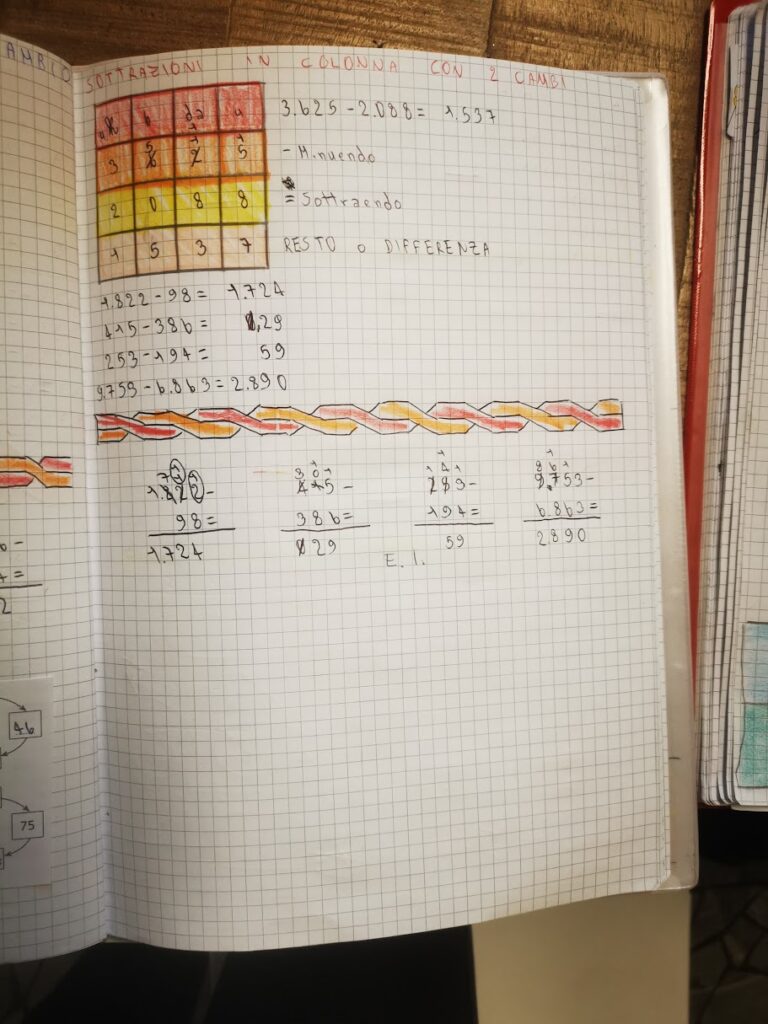 AMBIO
SOTTRAZIONI IN COLONNA CON 2 CAMBI
h da u
3.625-2.088= 1.537
3 6 2 5
- Minuendo
2 0 8 8
= Sottraendo
1 5 3 7
RESTO o DIFFERENZA
1.822-98= 1.724
415-386= 29
253-194= 59
9.753-6.863=2.890
1.822-
98=
1.724
415-
386=
29
253-
194=
59
9.753-
6.863=
2.890
E. I.
46
75